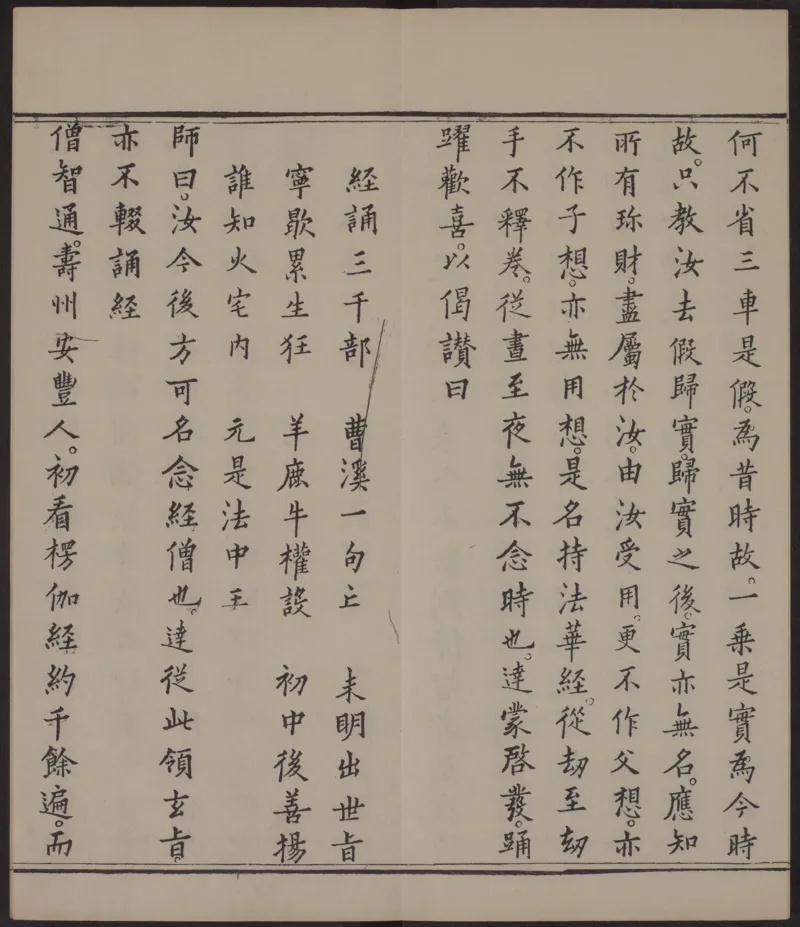 何不省三車是假。爲昔時故。一乗是實爲今時
故。只教汝去假歸實。歸實之後。實亦無名。應知
所有珎財。盡屬於汝。由汝受用。更不作父想。亦
不作子想。亦無用想。是名持法華經。從劫至刧
手不釋卷。從晝至夜無不念時也。達蒙啓發。踊
躍歡喜。以偈讃曰
経誦三千部　曹溪一句亡　未明出世旨
寧歇累生狂　羊鹿牛權設　初中後善揚
誰知火宅内　元是法中王
師曰。汝今後方可名念経僧也。達從此領玄旨。
亦不輟誦経
僧智通。壽州安豐人。初看楞伽経約千餘遍。而